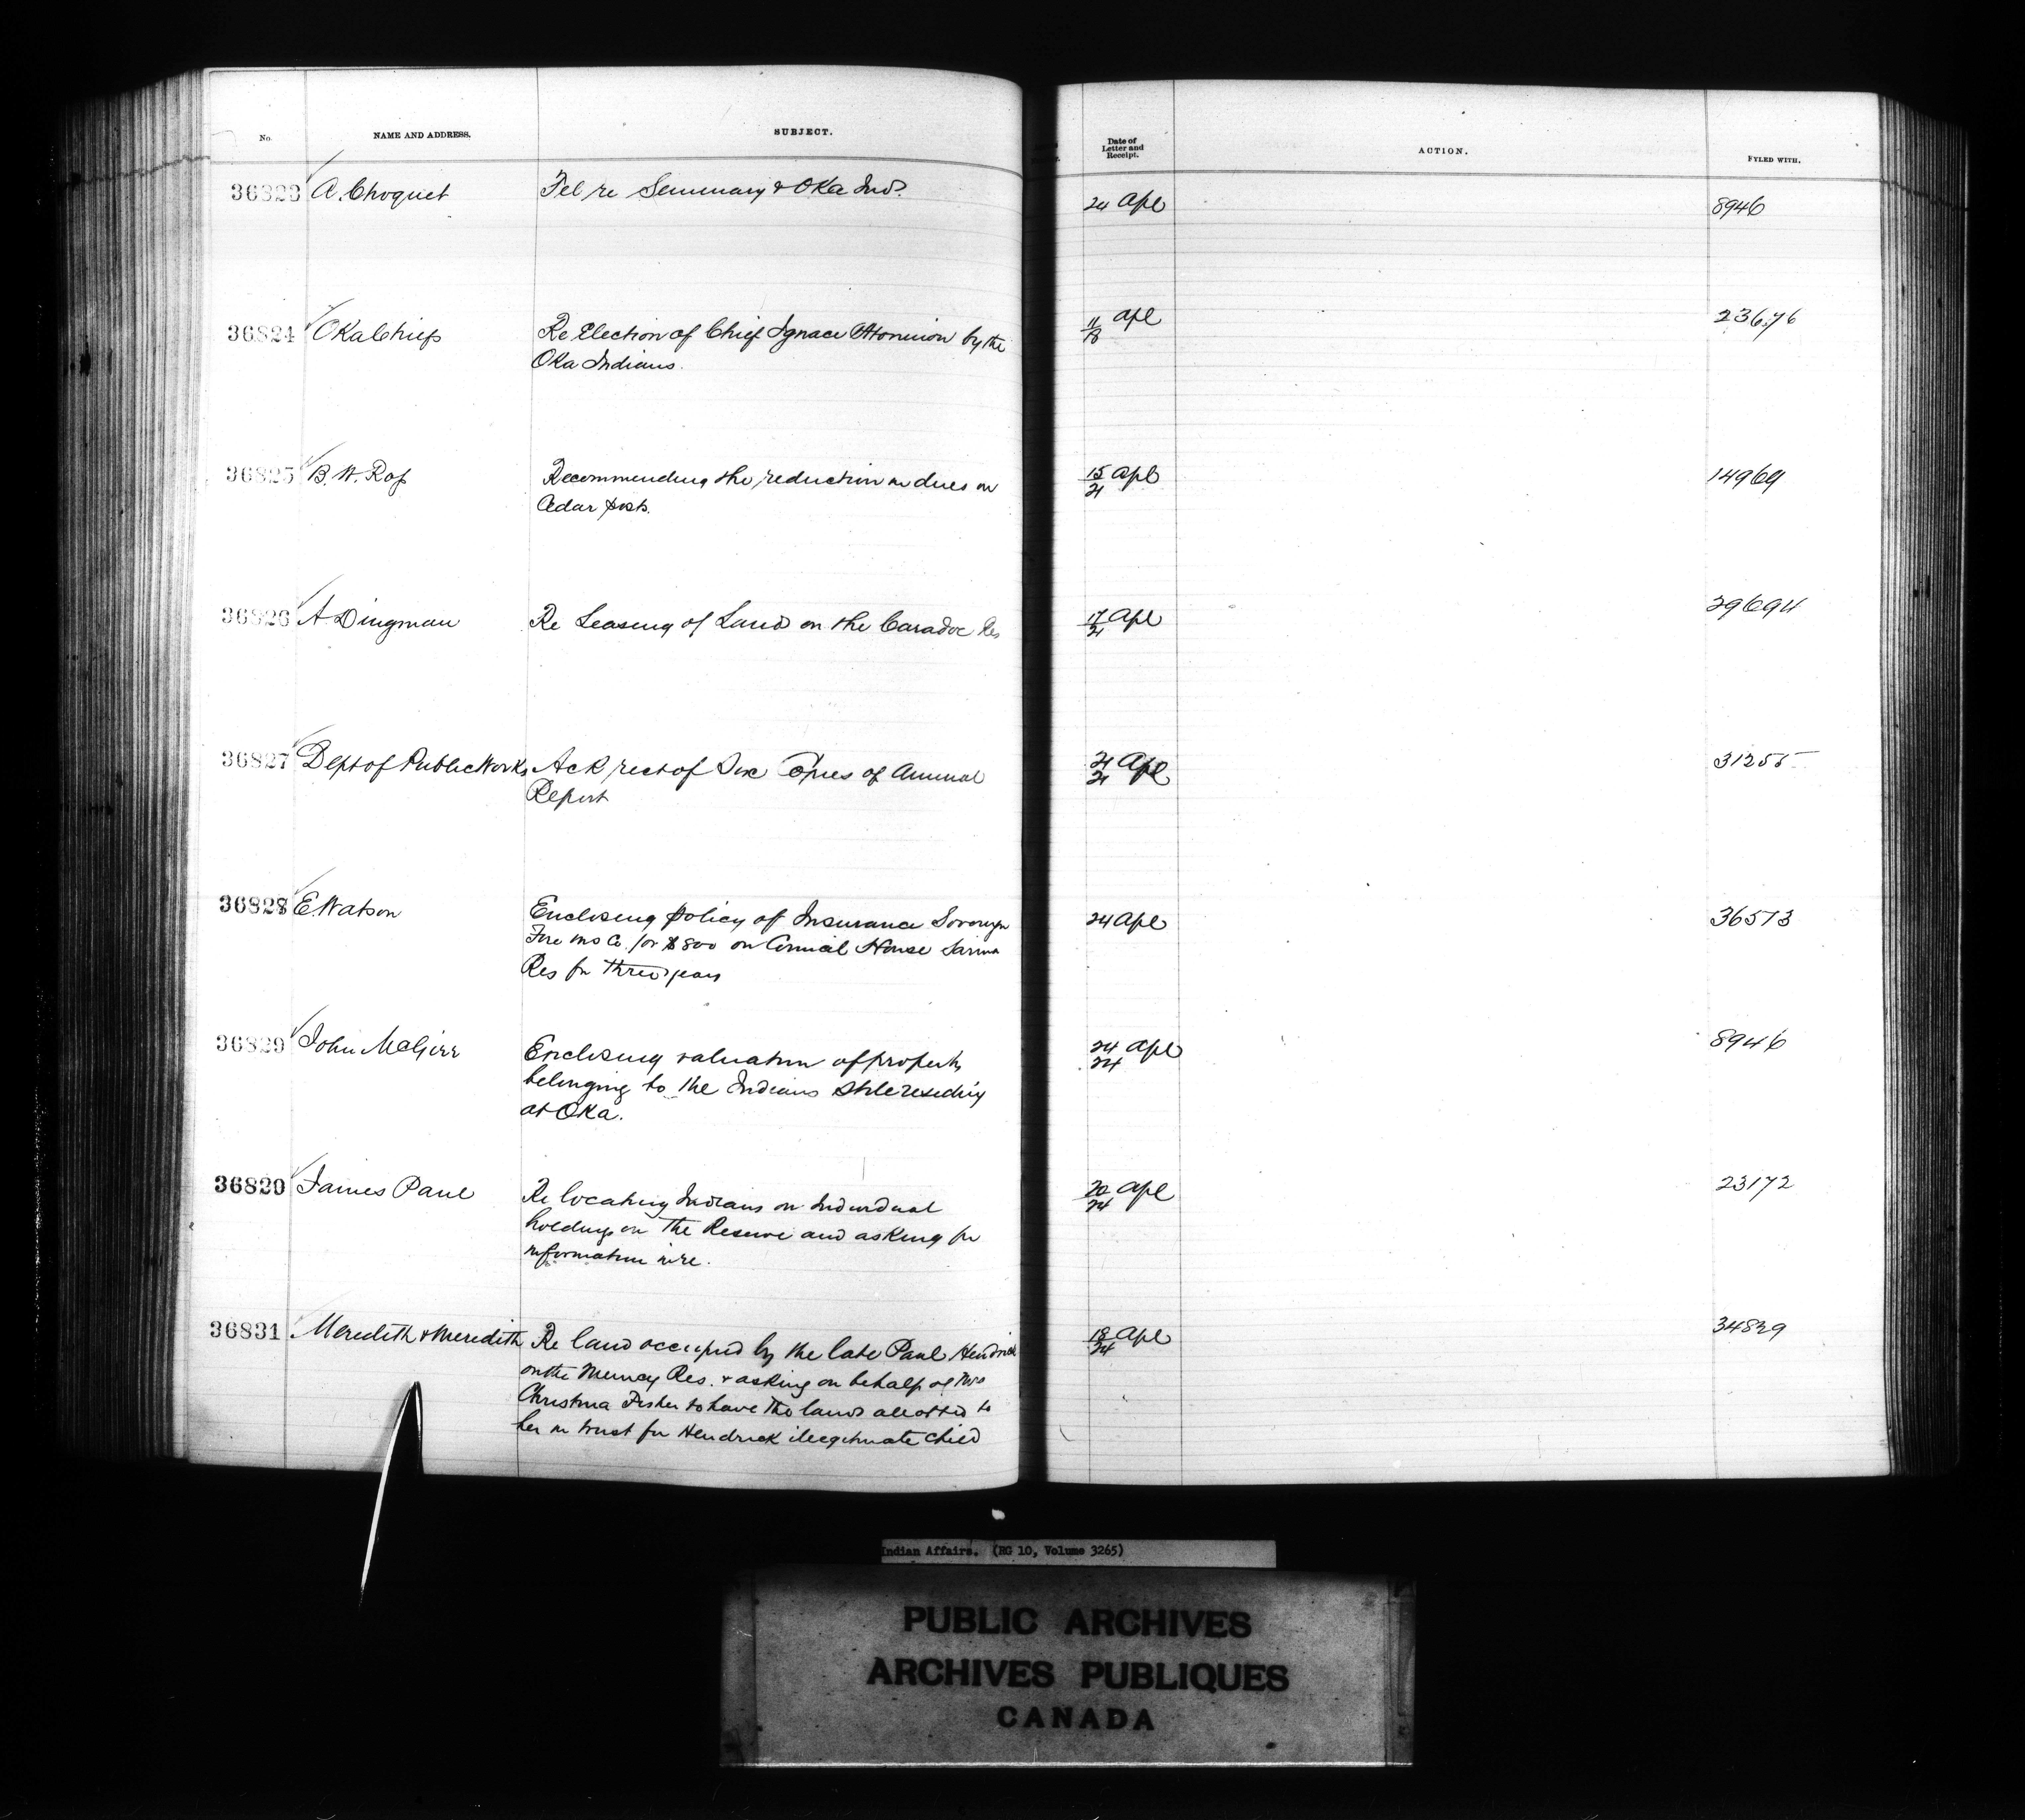 No. NAME AND ADDRESS. SUBJECT. Date of Letter and Receipt. ACTION. FYLED WITH.
36823 A. Choquet Tel re Seminary & Oka Inds. 24 Apl 8946
36824 Oka Chiefs Re Election of Chief Ignace by the 11/18 Apl 23676
Oka Indians.
36825 B. W. Ross Recommending the reduction in dues on 15/21 Apl 14969
Cedar posts.
36826 A Dingman Re Leasing of Land on the Caradoc Res 17/21 Apl 29694
36827 Dept of Public Works Ack rect of Six Copies of Annual 21/21 Apl 31255
Report
36828 E. Watson Enclosing policy of Insurance Sovereign 24 Apl 36573
Fire Ins Co. for $800 on Council House Sarnia
Res for three years
36829 John McGirr Enclosing valuation of property 24/24 Apl 8946
belonging to the Indians still residing
at Oka.
36820 James Paul Re locating Indians on Individual 20/24 Apl 23172
holdings on the Reserve and asking for
information in re.
36831 Meredith & Meredith Re land occupied by the late Paul Hendrick 18/24 Apl 34829
on the Muncey Res. & asking on behalf of Mrs
Christina Fisher to have the land allotted to
her in trust for Hendrick illegitimate child
Indian Affairs. (RG 10, Volume 3265)
PUBLIC ARCHIVES
ARCHIVES PUBLIQUES
CANADA